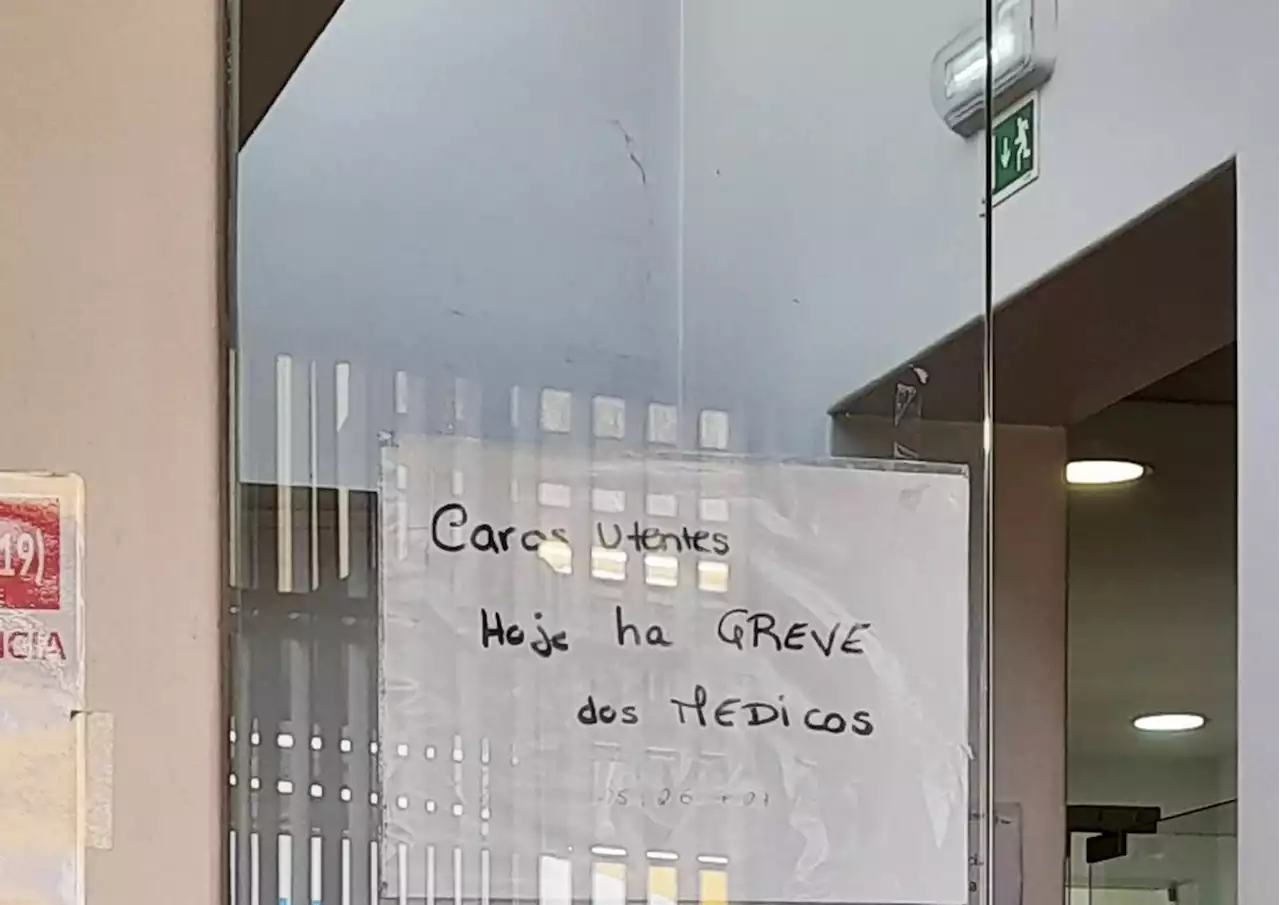 19)
NCIA
Caros Utentes
Hoje ha GREVE
dos MEDicos